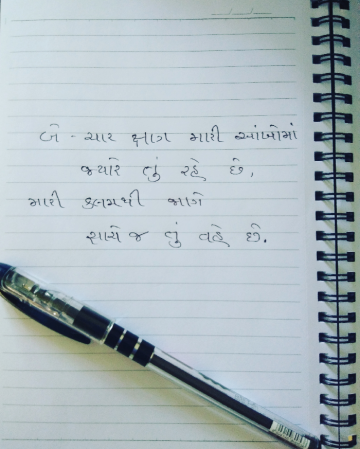 બે - ચાર ક્ષણ મારી આંખોમાં
જ્યારે તું રહે છે,
મારી કલમથી જાણે
સાચે જ તું વહે છે.